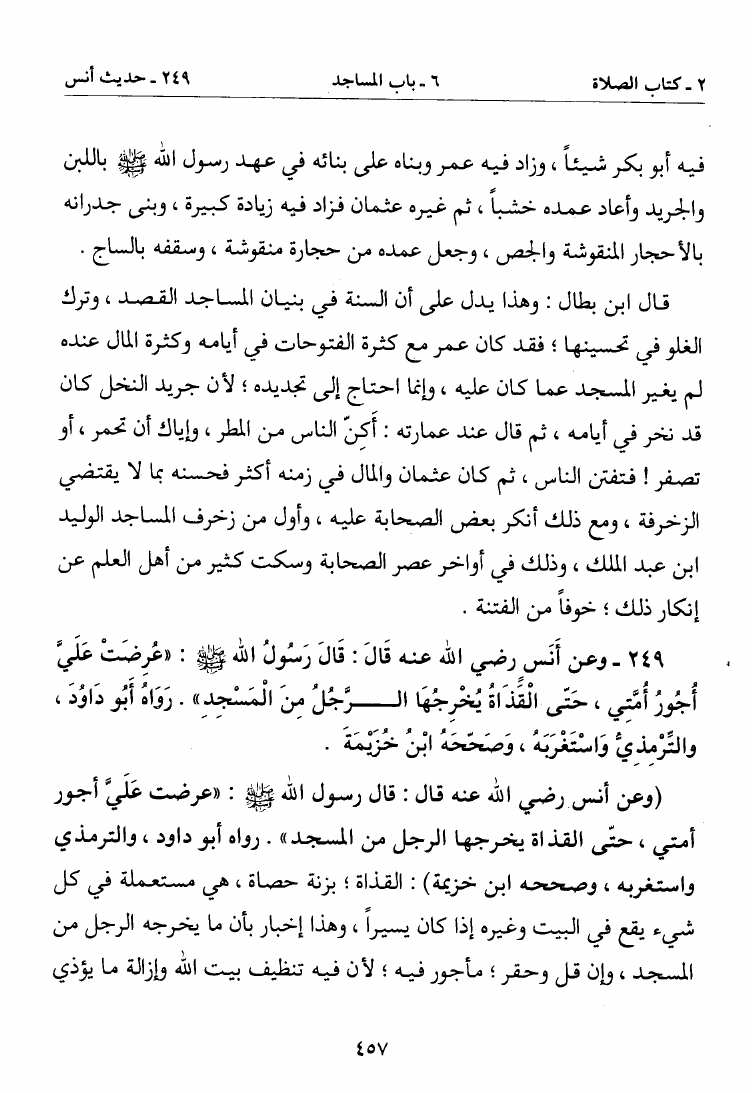 ٢ ـ كتاب الصلاة ٦ ـ باب المساجد ٢٤٩ ـ حديث أنس
فيه أبو بكر شيئاً ، وزاد فيه عمر وبناه على بنائه في عهد رسول الله ﷺ باللبن
والجريد وأعاد عمده خشباً ، ثم غيره عثمان فزاد فيه زيادة كبيرة ، وبنى جدرانه
بالأحجار المنقوشة والجص ، وجعل عمده من حجارة منقوشة ، وسقفه بالساج .
قال ابن بطال : وهذا يدل على أن السنة في بنيان المساجد القصد ، وترك
الغلو في تحسينها ؛ فقد كان عمر مع كثرة الفتوحات في أيامه وكثرة المال عنده
لم يغير المسجد عما كان عليه ، وإنما احتاج إلى تجديده ؛ لأن جريد النخل كان
قد نخر في أيامه ، ثم قال عند عمارته : أَكِنّ الناس من المطر ، وإياك أن تحمر ، أو
تصفر ! فتفتن الناس ، ثم كان عثمان والمال في زمنه أكثر فحسنه بما لا يقتضي
الزخرفة ، ومع ذلك أنكر بعض الصحابة عليه ، وأول من زخرف المساجد الوليد
ابن عبد الملك ، وذلك في أواخر عصر الصحابة وسكت كثير من أهل العلم عن
إنكار ذلك ؛ خوفاً من الفتنة .
٢٤٩ ـ وعن أَنَسٍ رضي الله عنه قَالَ : قَالَ رَسُولُ الله ﷺ : «عُرِضَتْ عَلَيَّ
أُجُورُ أُمَّتِي ، حَتَّى الْقَذَاةُ يُخْرِجُهَا الــرَّجُلُ مِنَ الْمَسْجِدِ» . رَوَاهُ أَبُو دَاوُدَ ،
والتِّرْمِذيُّ وَاسْتَغْرَبَهُ ، وَصَحَّحَهُ ابْنُ خُزَيْمَةَ .
(وعن أنس رضي الله عنه قال : قال رسول الله ﷺ : «عرضت عَلَيَّ أجور
أمتي ، حتّى القذاة يخرجها الرجل من المسجد» . رواه أبو داود ، والترمذي
واستغربه ، وصححه ابن خزيمة) : القذاة ؛ بزنة حصاة ، هي مستعملة في كل
شيء يقع في البيت وغيره إذا كان يسيراً ، وهذا إخبار بأن ما يخرجه الرجل من
المسجد ، وإن قل وحقر ؛ مأجور فيه ؛ لأن فيه تنظيف بيت الله وإزالة ما يؤذي
٤٥٧